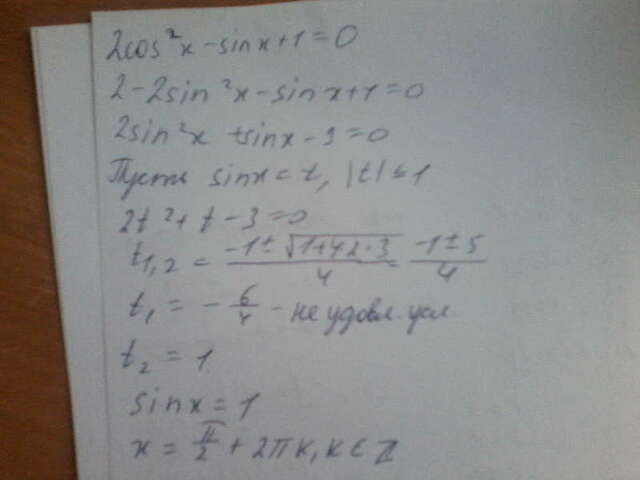 2cos²x - sinx + 1 = 0
2 - 2sin²x - sinx + 1 = 0
2sin²x + sinx - 3 = 0
Пусть sinx = t, |t| ≤ 1
2t² + t - 3 = 0
t₁,₂ = (-1 ± √(1+42·3))/4 = (-1 ± 5)/4
t₁ = - 6/4 - не удовл. усл
t₂ = 1
sinx = 1
x = π/2 + 2πk, k ∈ Z